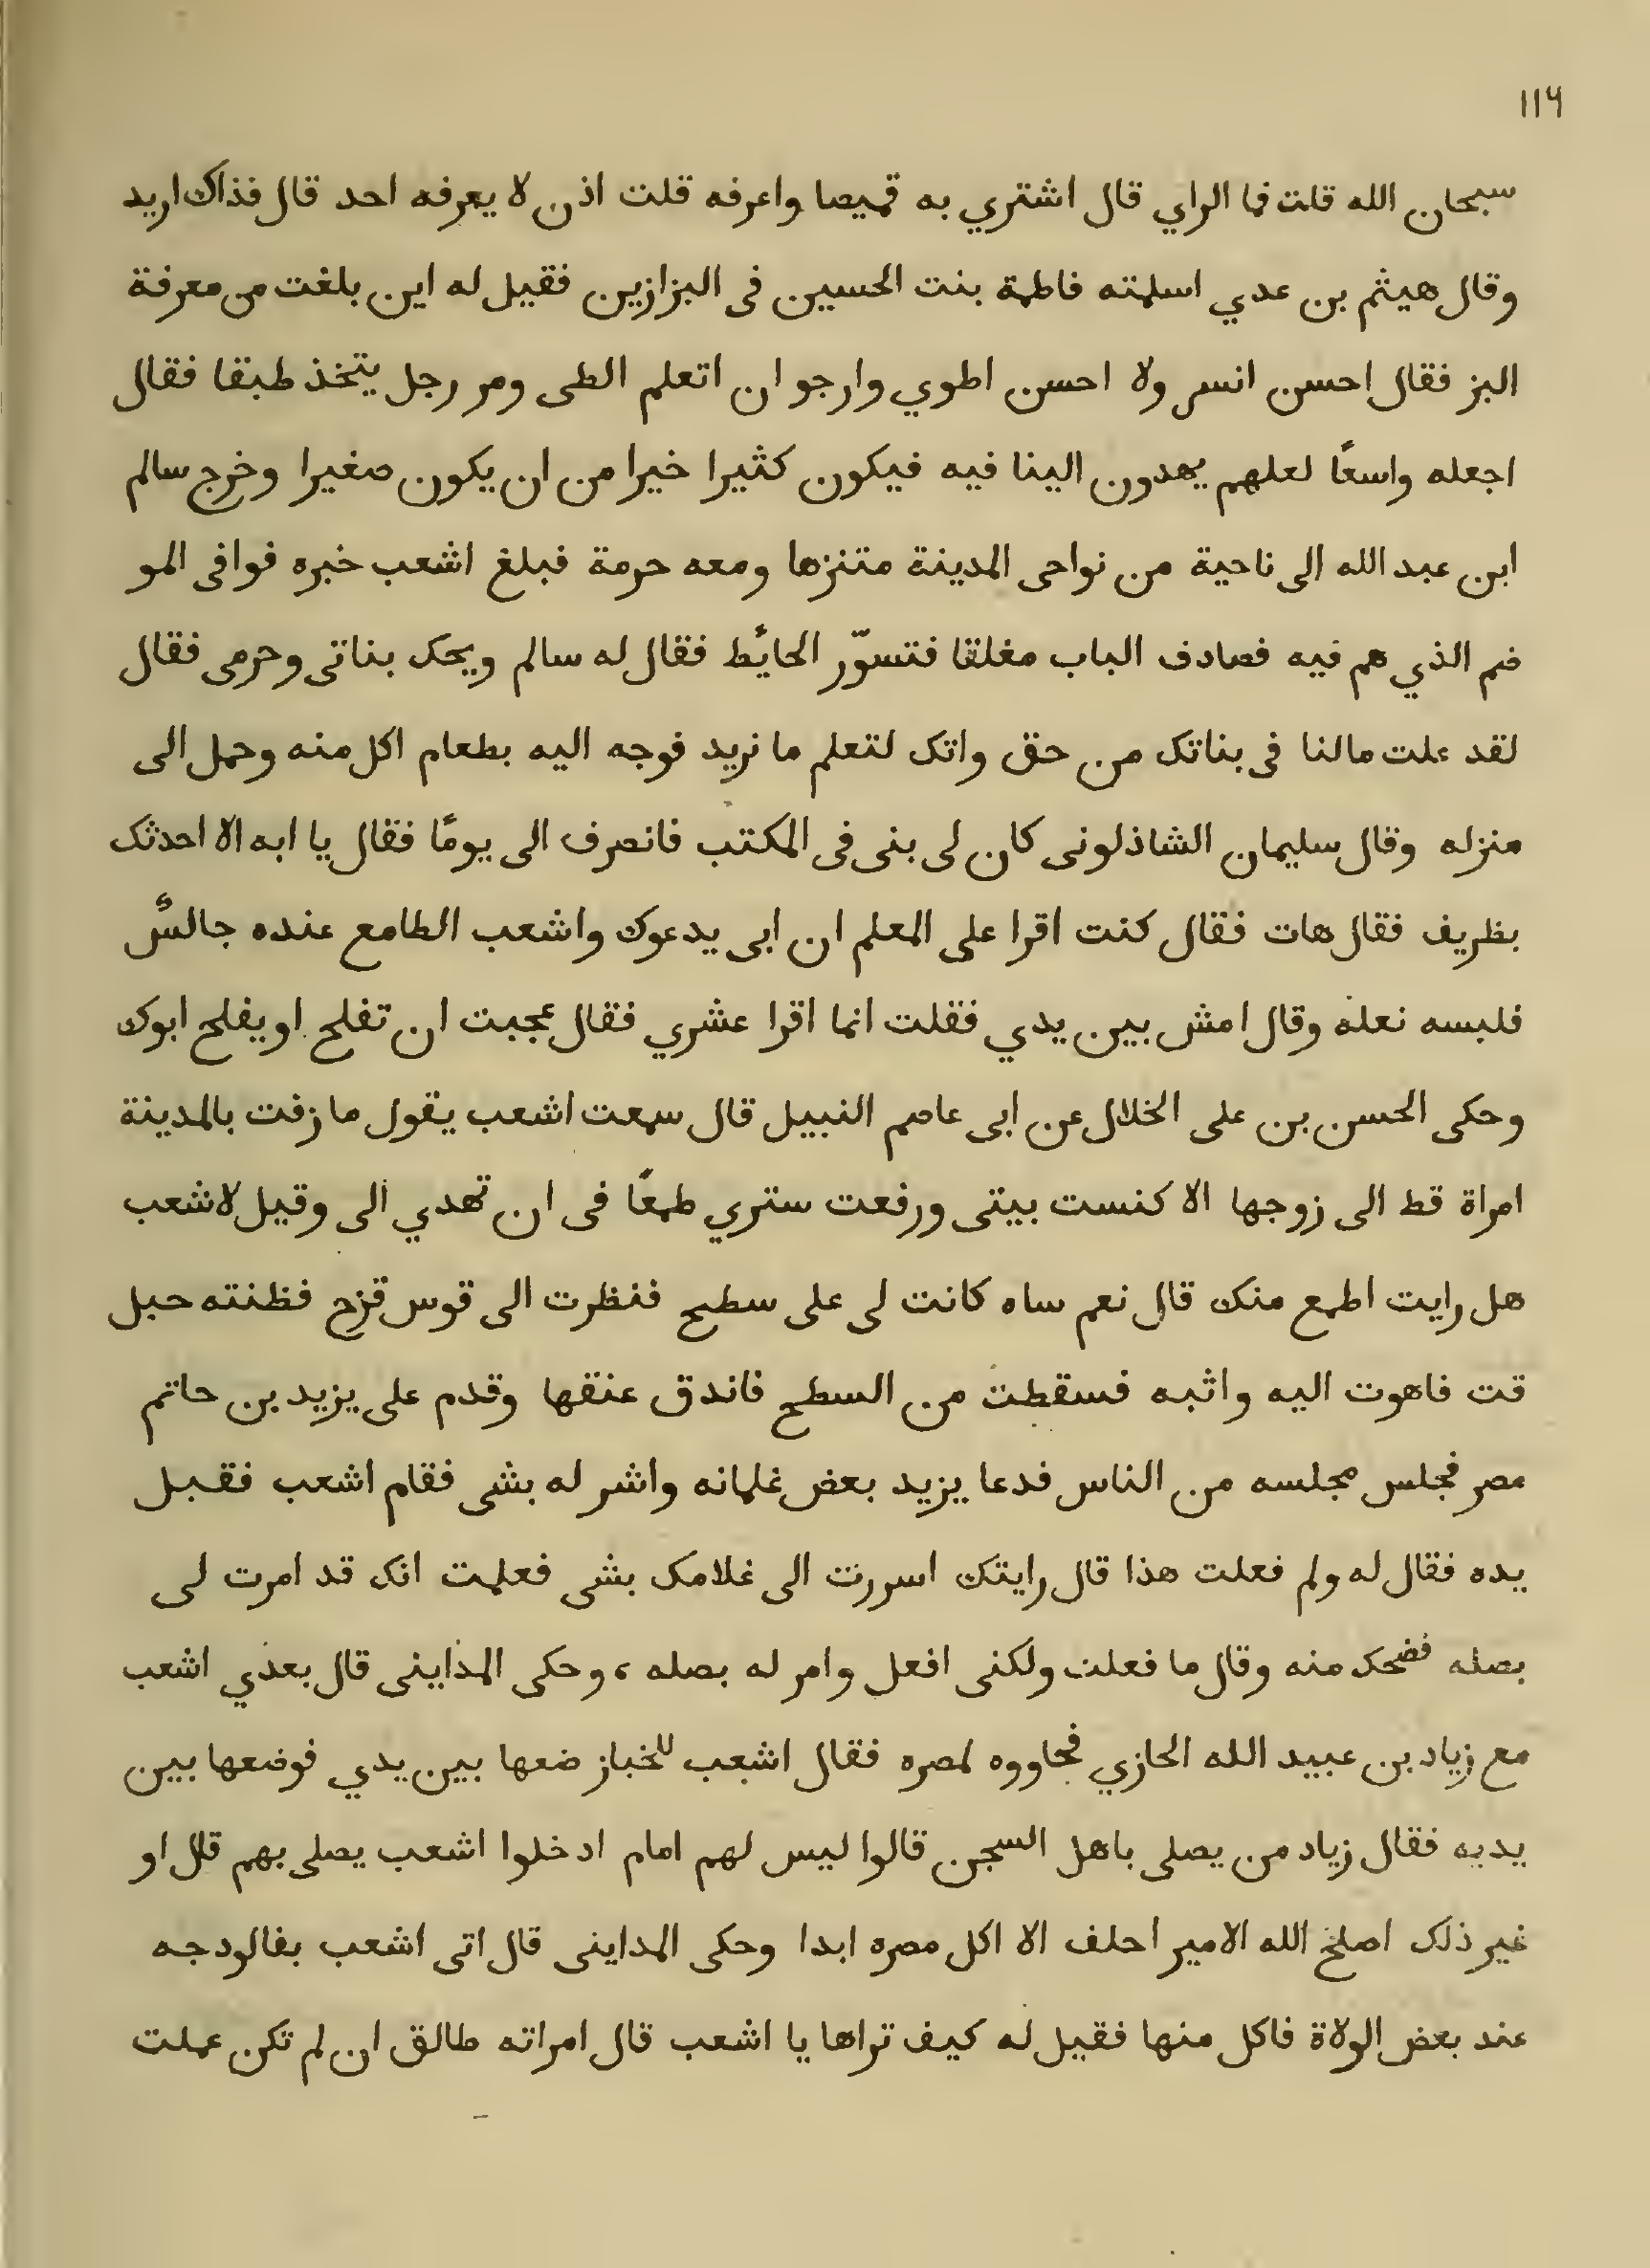 ١١٦
سبحان الله قلت فما الراي قال اشتري به قميصا واعرفه قلت اذن لا يعرفه احد قال فذاك اريد
وقال هيثم بن عدي اسلمته فاطمة بنت الحسين فى البزازين فقيل له اين بلغت من معرفة
البز فقال احسن انسر ولا احسن اطوي وارجو ان اتعلم الطى ومر رجل يتخذ طبقا فقال
اجعله واسعًا لعلهم يهدون الينا فيه فيكون كثيرا خيرا من ان يكون صغيرا وخرج سالم
ابن عبد الله الى ناحية من نواحى المدينة متنزها ومعه حرمة فبلغ اشعب خبره فوافى المو
ضم الذي هم فيه فصادف الباب مغلقا فتسوّر الحائط فقال له سالم ويحك بناتى وحرمى فقال
لقد علمت مالنا فى بناتك من حق وانك لتعلم ما نريد فوجه اليه بطعام اكل منه وحمل الى
منزله وقال سليمان الشاذلونى كان لى بنى فى المكتب فانصرف الى يومًا فقال يا ابه الا احدثك
بظريف فقال هات فقال كنت اقرا على المعلم ان ابى يدعوك واشعب الطامع عنده جالسٌ
فلبسه نعله وقال امش بين يدي فقلت انما اقرا عشري فقال عجبت ان تفلح او يفلح ابوك
وحكى الحسن بن على الخلال عن ابى عاصم النبيل قال سمعت اشعب يقول ما زفت بالمدينة
امراة قط الى زوجها الا كنست بيتى ورفعت ستري طمعًا فى ان تهدي الى وقيل لاشعب
هل رايت اطمع منك قال نعم ساه كانت لى على سطح فنظرت الى قوس قزح فظنته حبل
قت فاهوت اليه واثبه فسقطت من السطح فاندق عنقها وقدم على يزيد بن حاتم
مصر فجلس مجلسه من الناس فدعا يزيد بعض غلمانه واشر له بشى فقام اشعب فقبل
يده فقال له ولم فعلت هذا قال رايتك اسررت الى غلامك بشى فعلمت انك قد امرت لى
بصله فضحك منه وقال ما فعلت ولكنى افعل وامر له بصله ، وحكى المداينى قال بعذي اشعب
مع زياد بن عبيد الله الحازي فجاووه لمصره فقال اشعب للخباز ضعها بين يدي فوضعها بين
يديه فقال زياد من يصلى باهل السجن قالوا ليس لهم امام ادخلوا اشعب يصلى بهم قال او
غير ذلك اصلح الله الامير احلف الا اكل مصره ابدا وحكى المداينى قال اتى اشعب بفالودجه
عند بعض الولاة فاكل منها فقيل له كيف تراها يا اشعب قال امراته طالق ان لم تكن عملت